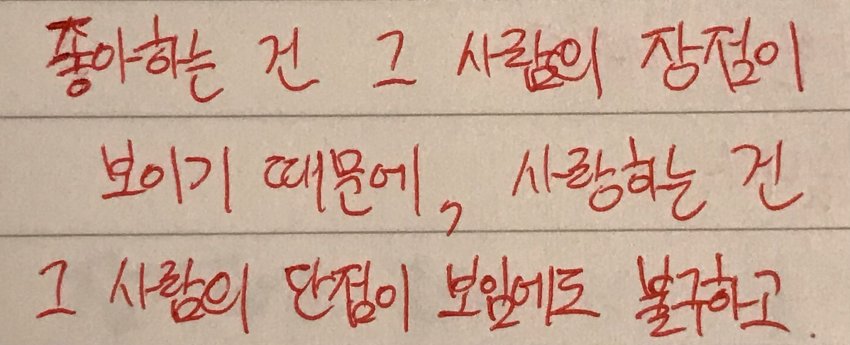 좋아하는 건 그 사람의 장점이
보이기 때문에, 사랑하는 건
그 사람의 단점이 보임에도 불구하고.